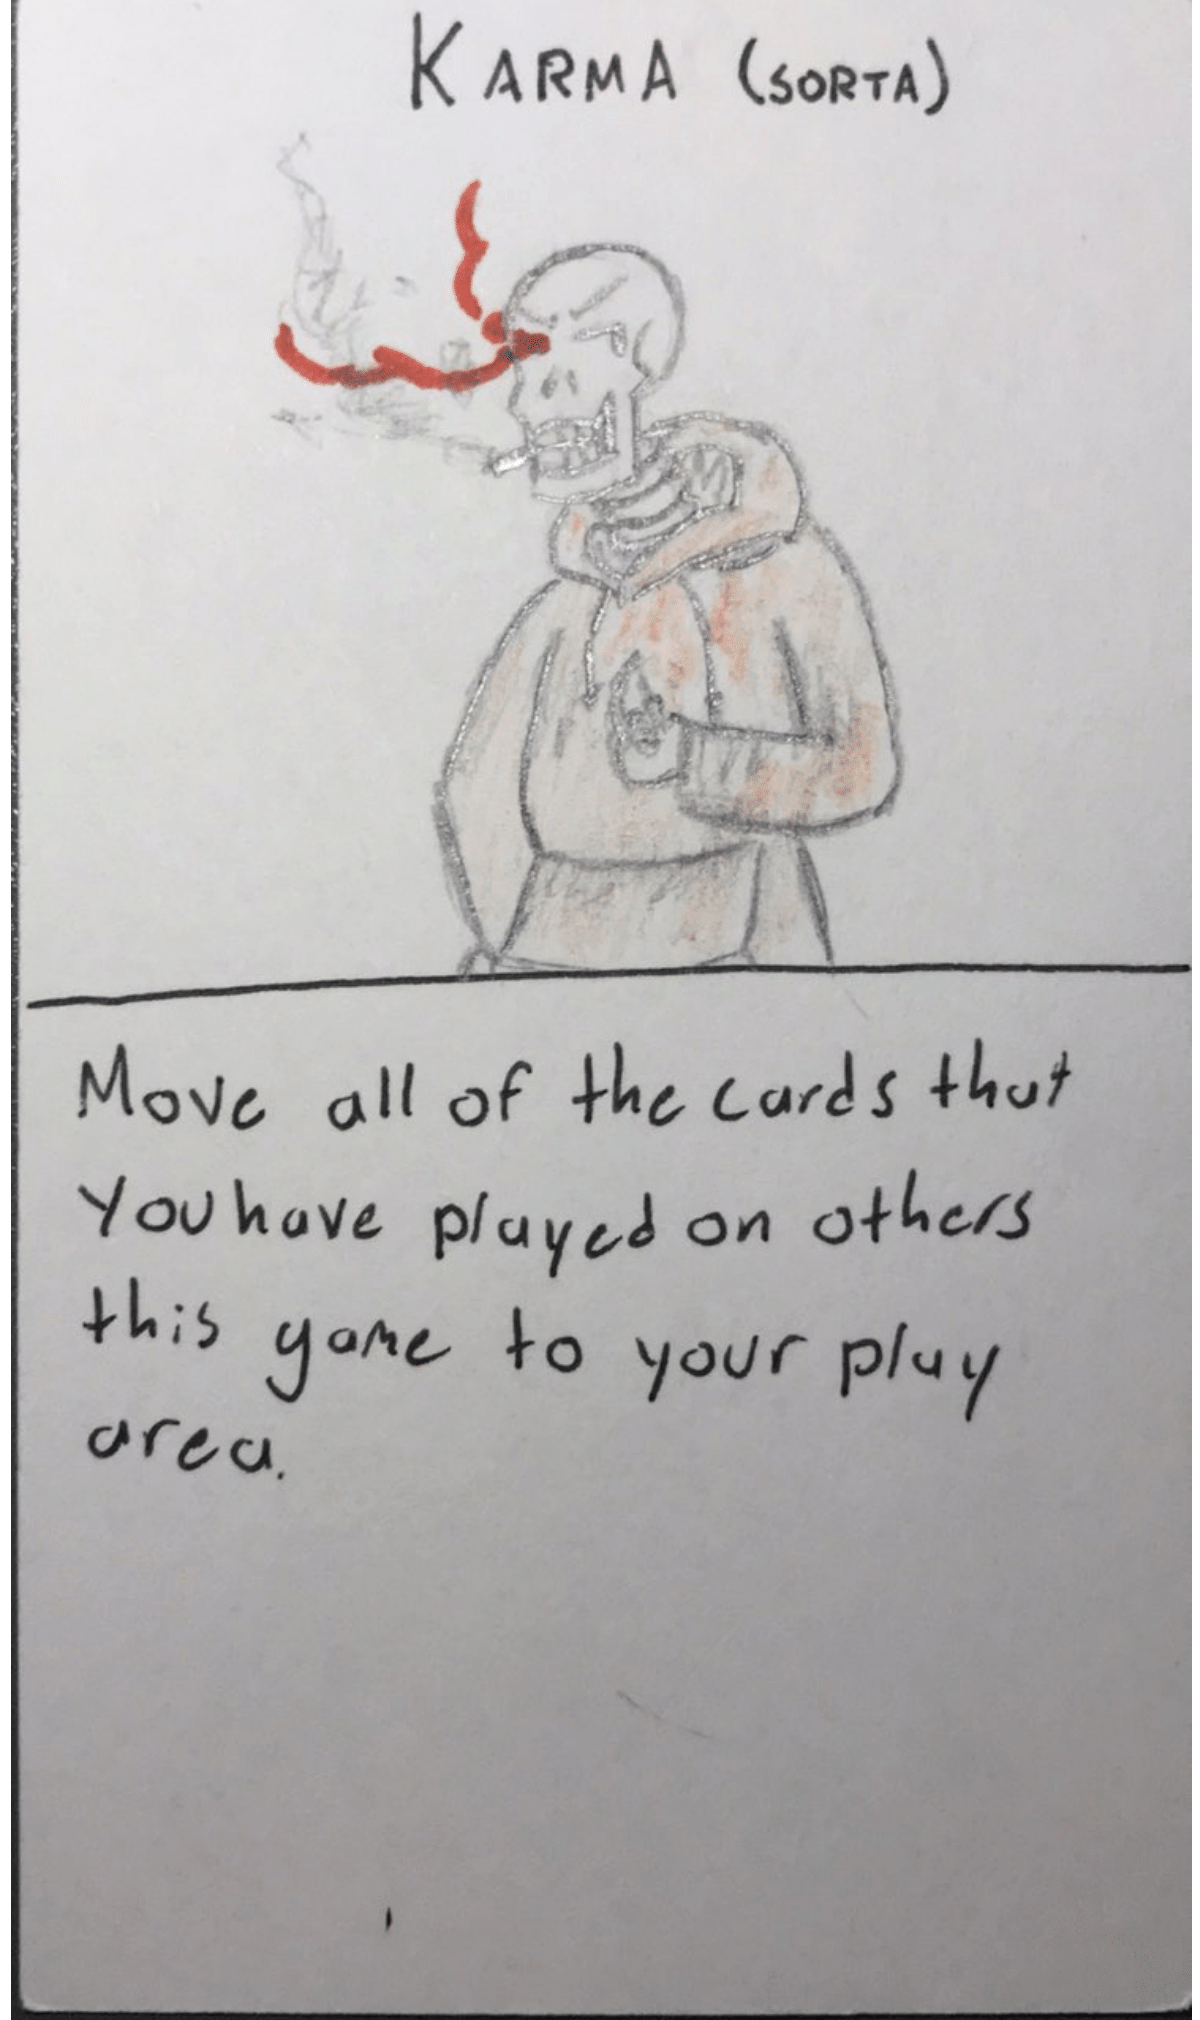 KARMA (SORTA)
Move all of the cards that
you have played on others
this game to your play
area.